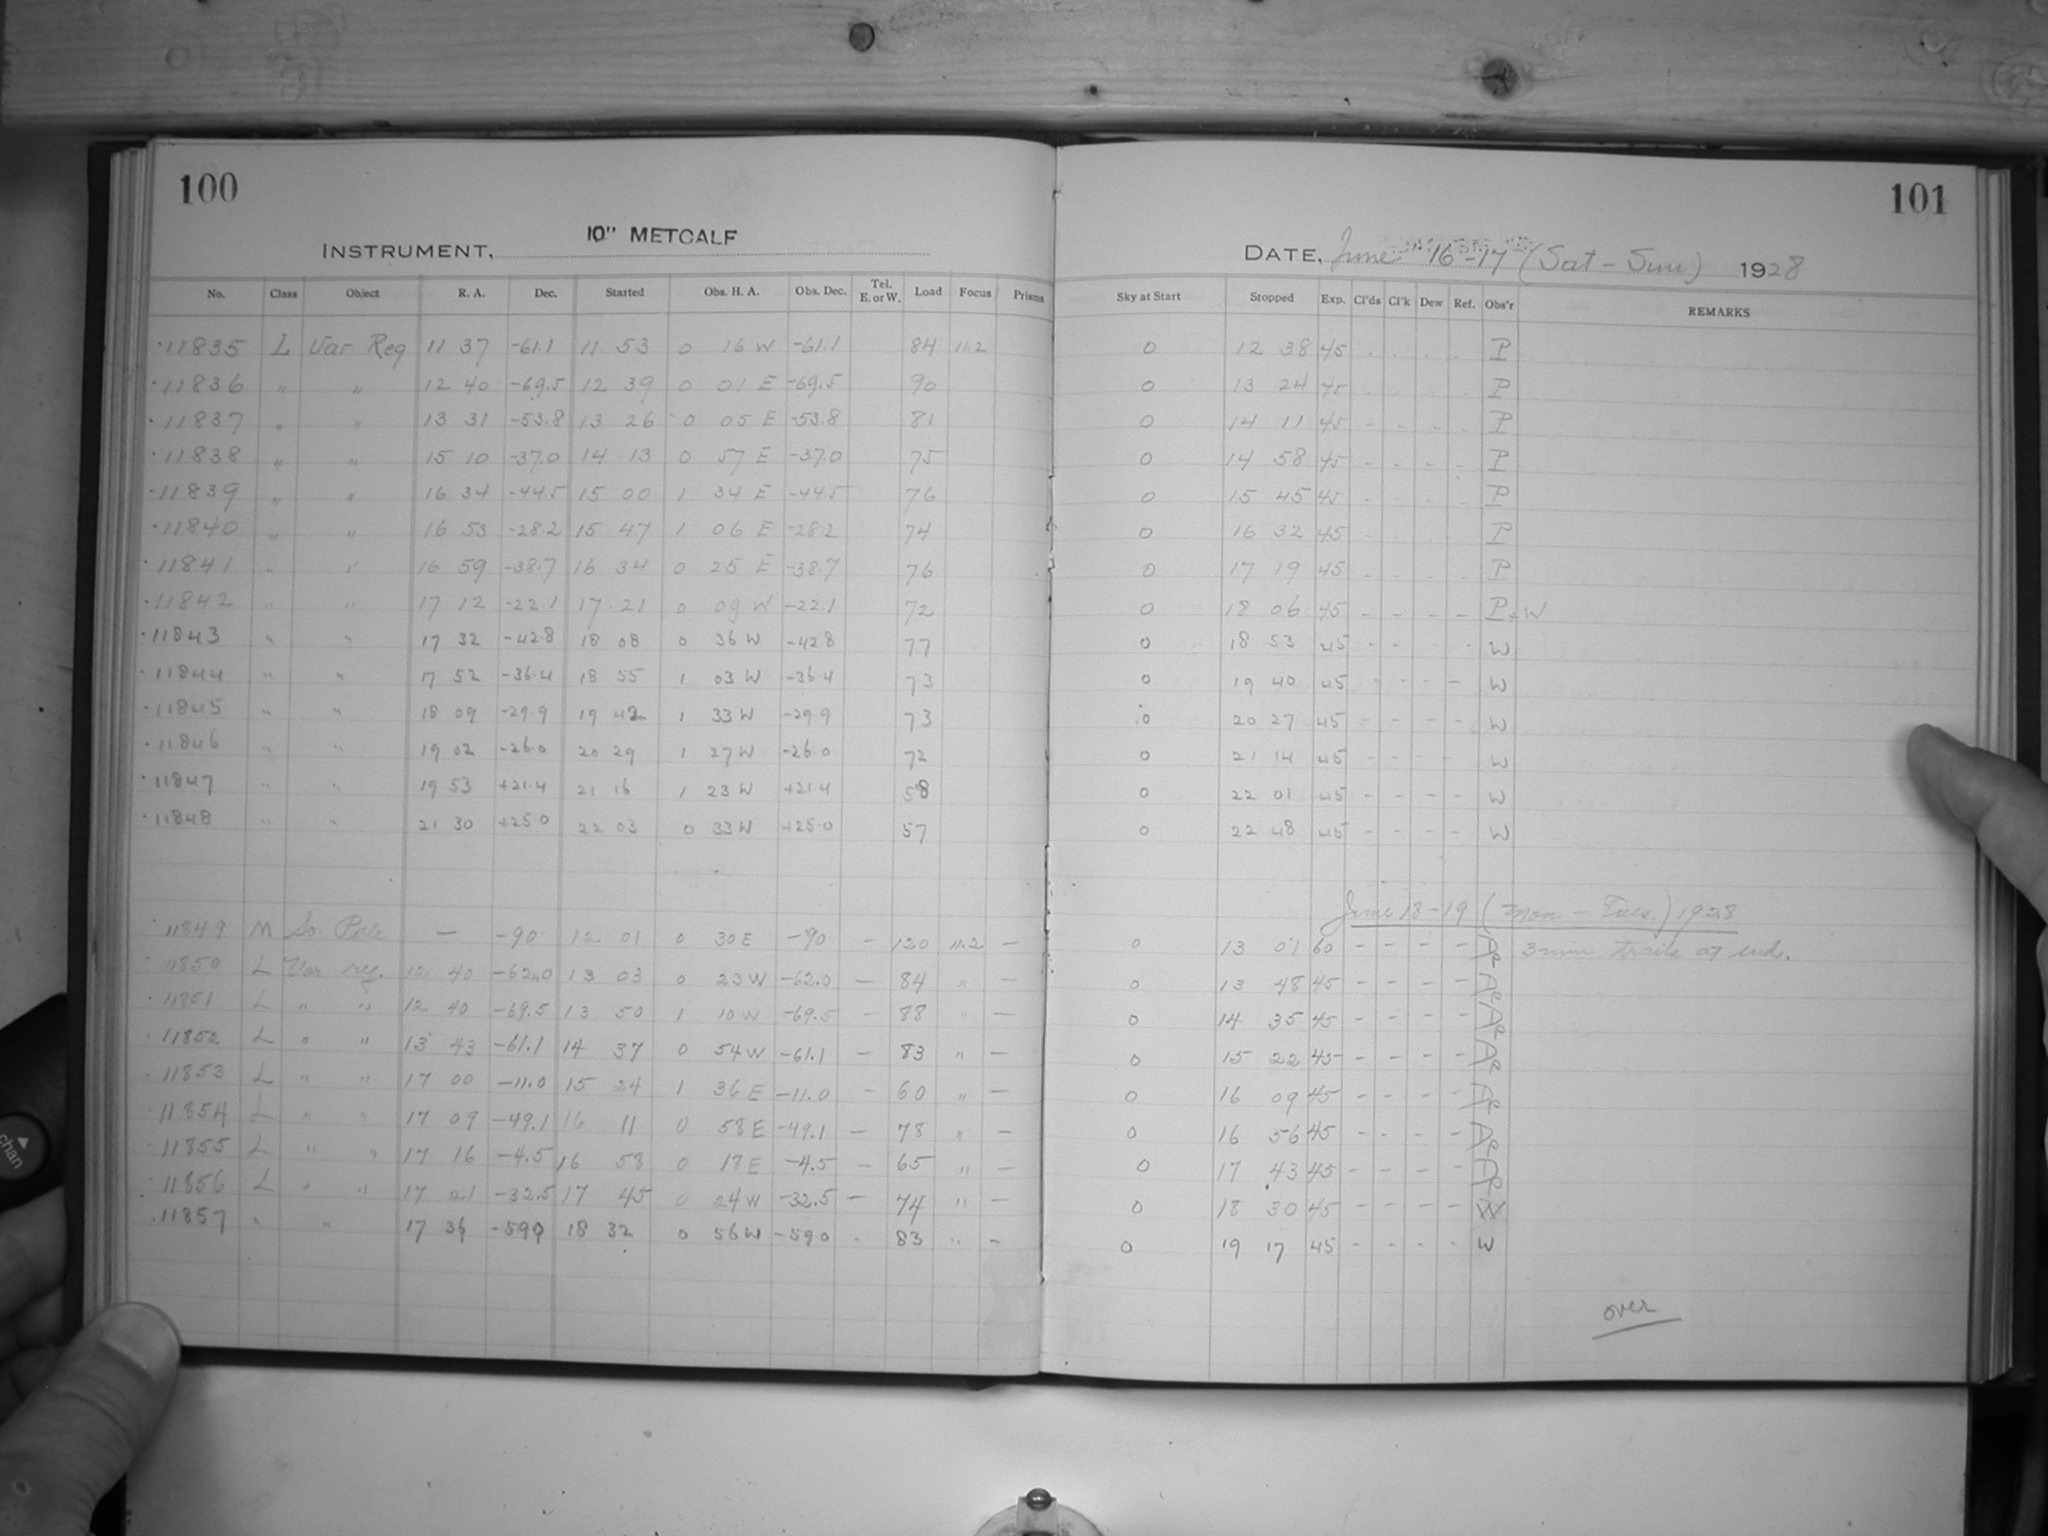 100
101
INSTRUMENT, 10" METCALF
DATE, June 16-17 (Sat - Sun) 1928
No. Class Object R. A. Dec. Started Obs. H. A. Obs. Dec. Tel. E. or W. Load Focus Prisms Sky at Start Stopped Exp. Cl'ds Cl'k Dew Ref. Obs'r REMARKS
11835 L Var Reg 11 37 -61.1 11 53 0 16 W -61.1 84 11.2 0 12 38 45 P
11836 " " 12 40 -69.5 12 39 0 01 E -69.5 90 0 13 24 45 P
11837 " " 13 31 -53.8 13 26 0 05 E -53.8 81 0 14 11 45 - - - - P
11838 " " 15 10 -37.0 14 13 0 57 E -37.0 75 0 14 58 45 - - - - P
11839 " " 16 34 -44.5 15 00 1 34 E -44.5 76 0 15 45 45 - - - - P
11840 " " 16 53 -28.2 15 47 1 06 E -28.2 74 0 16 32 45 P
11841 " " 16 59 -38.7 16 34 0 25 E -38.7 76 0 17 19 45 - - - - P
11842 " " 17 12 -22.1 17 21 0 09 W -22.1 72 0 18 06 45 - - - - P+W
11843 " " 17 32 -42.8 18 08 0 36 W -42.8 77 0 18 53 45 - - - - W
11844 " " 17 52 -36.4 18 55 1 03 W -36.4 73 0 19 40 45 - - - - W
11845 " " 18 09 -29.9 19 42 1 33 W -29.9 73 0 20 27 45 - - - - W
11846 " " 19 02 -26.0 20 29 1 27 W -26.0 72 0 21 14 45 - - - - W
11847 " " 19 53 +21.4 21 16 1 23 W +21.4 58 0 22 01 45 - - - - W
11848 " " 21 30 +25.0 22 03 0 33 W +25.0 57 0 22 48 45 - - - - W
June 18-19 (Mon. - Tues.) 1928
11849 M So. Pole — -90 12 01 0 30 E -90 - 120 11.2 - 0 13 01 60 - - - - 3 min trails at end.
11850 L Var reg. 12 40 -62.0 13 03 0 23 W -62.0 - 84 " - 0 13 48 45 - - - -
11851 L " " 12 40 -69.5 13 50 1 10 W -69.5 - 88 " - 0 14 35 45 - - - -
11852 L " " 13 43 -61.1 14 37 0 54 W -61.1 - 83 " - 0 15 22 45 - - - -
11853 L " " 17 00 -11.0 15 24 1 36 E -11.0 - 60 " - 0 16 09 45 - - - -
11854 L " " 17 09 -49.1 16 11 0 58 E -49.1 - 78 " - 0 16 56 45 - - - -
11855 L " " 17 16 -4.5 16 58 0 18 E -4.5 - 65 " - 0 17 43 45 - - - -
11856 L " " 17 21 -32.5 17 45 0 24 W -32.5 - 74 " - 0 18 30 45 - - - - W
11857 " " 17 36 -59.0 18 32 0 56 W -59.0 - 83 " - 0 19 17 45 - - - - W
over
chan